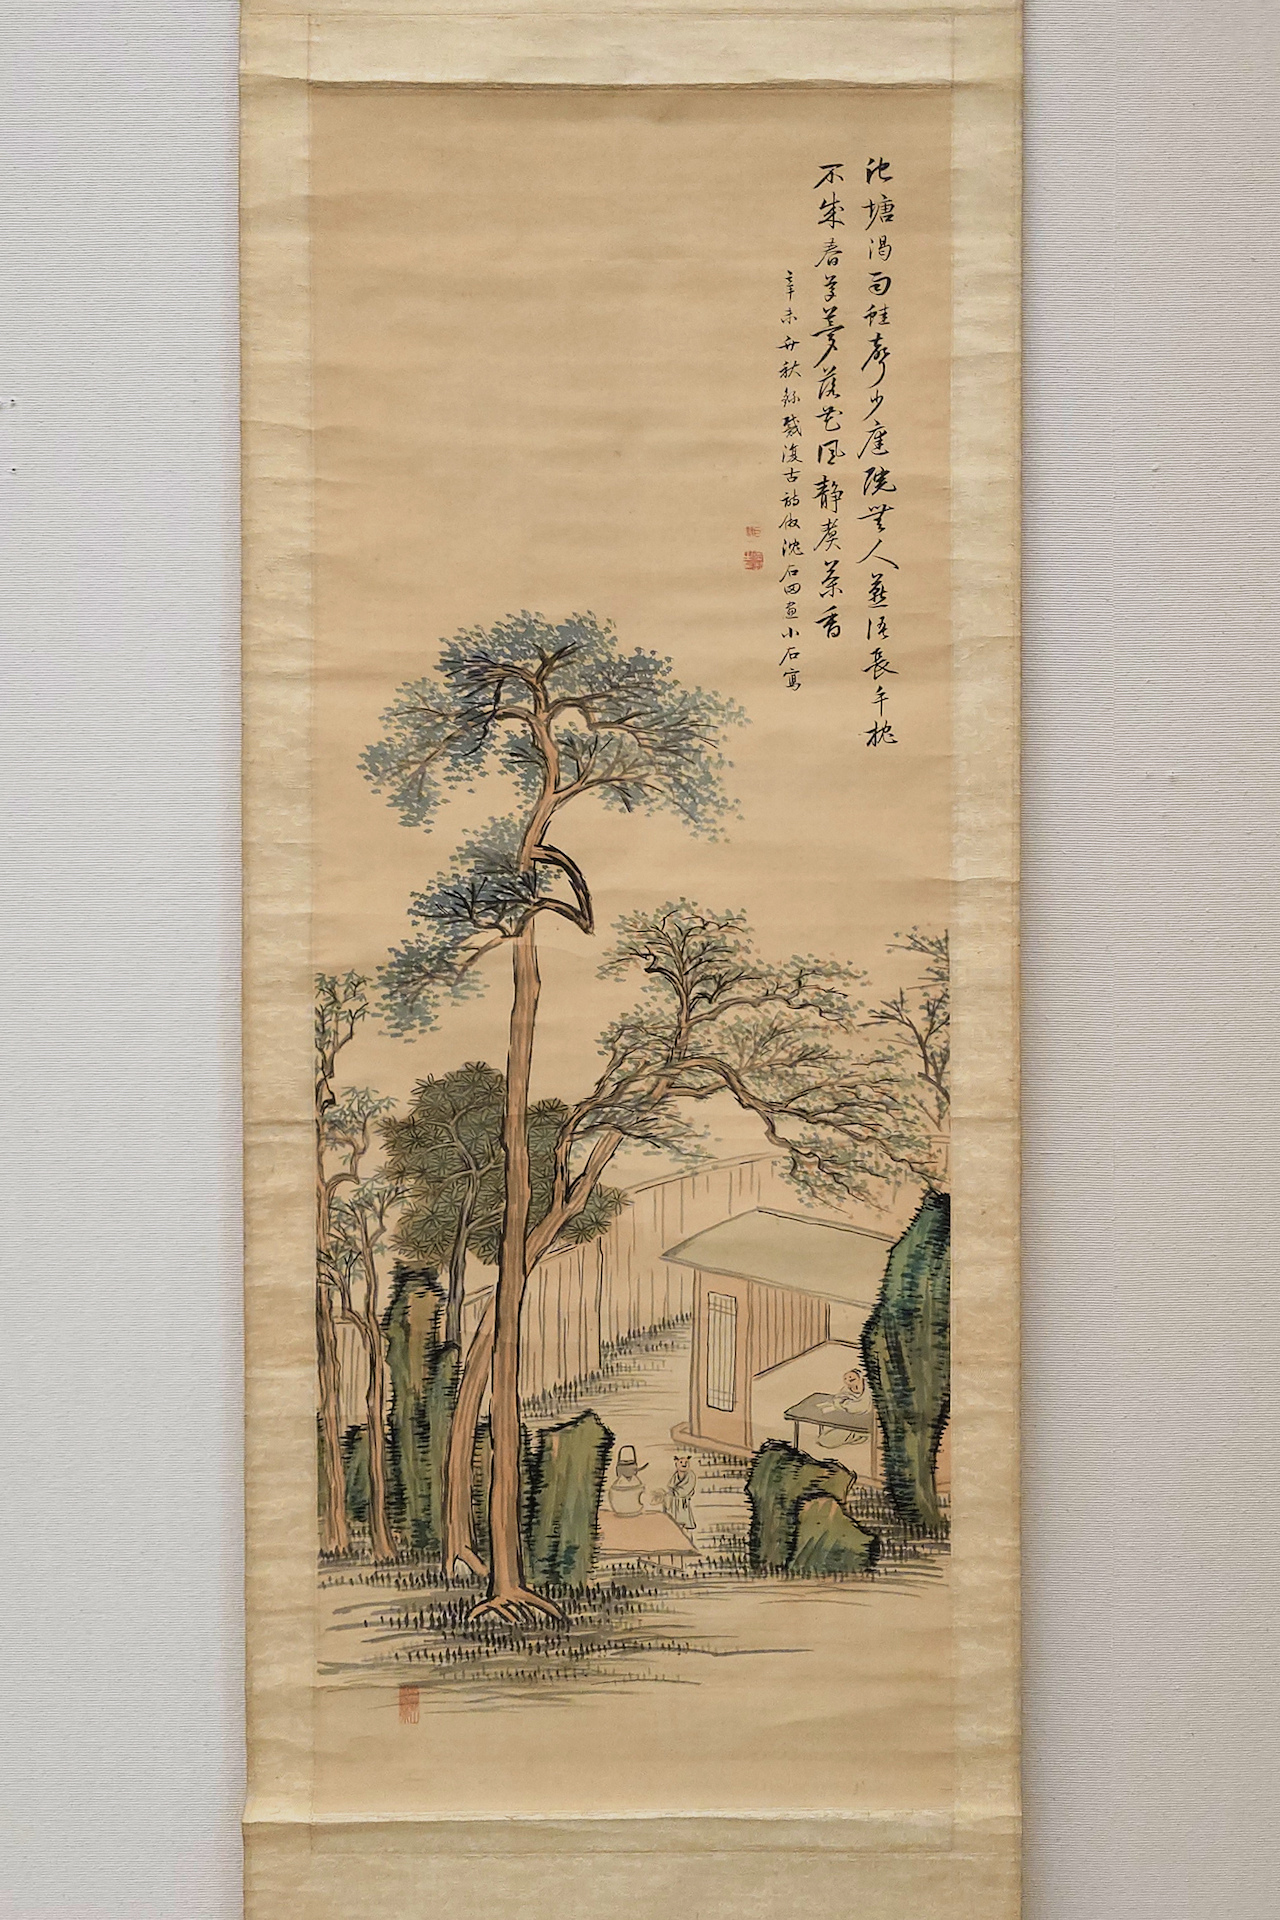 池塘渴雨蛙聲少庭院無人燕語長手枕
不成春草夢落花風靜煑茶香
辛未新秋錄戴復古詩倣沈石田畫小石寫